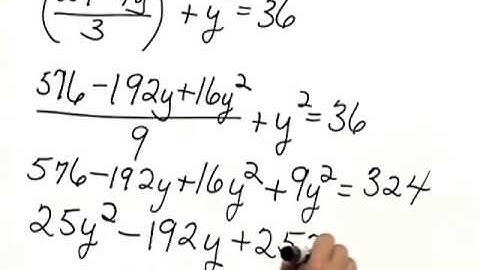 (/3) + y = 36
(576 - 192y + 16y²)/9 + y² = 36
576 - 192y + 16y² + 9y² = 324
25y² - 192y + 25